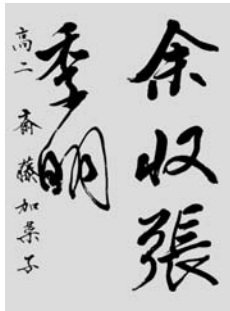 余収張
季明
高二 斎藤加菜子